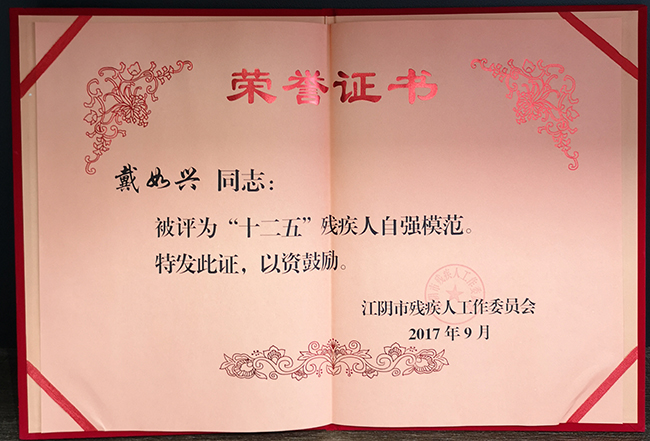 荣誉证书
戴如兴 同志：
被评为“十二五”残疾人自强模范。
特发此证，以资鼓励。
江阴市残疾人工作委员会
2017年9月